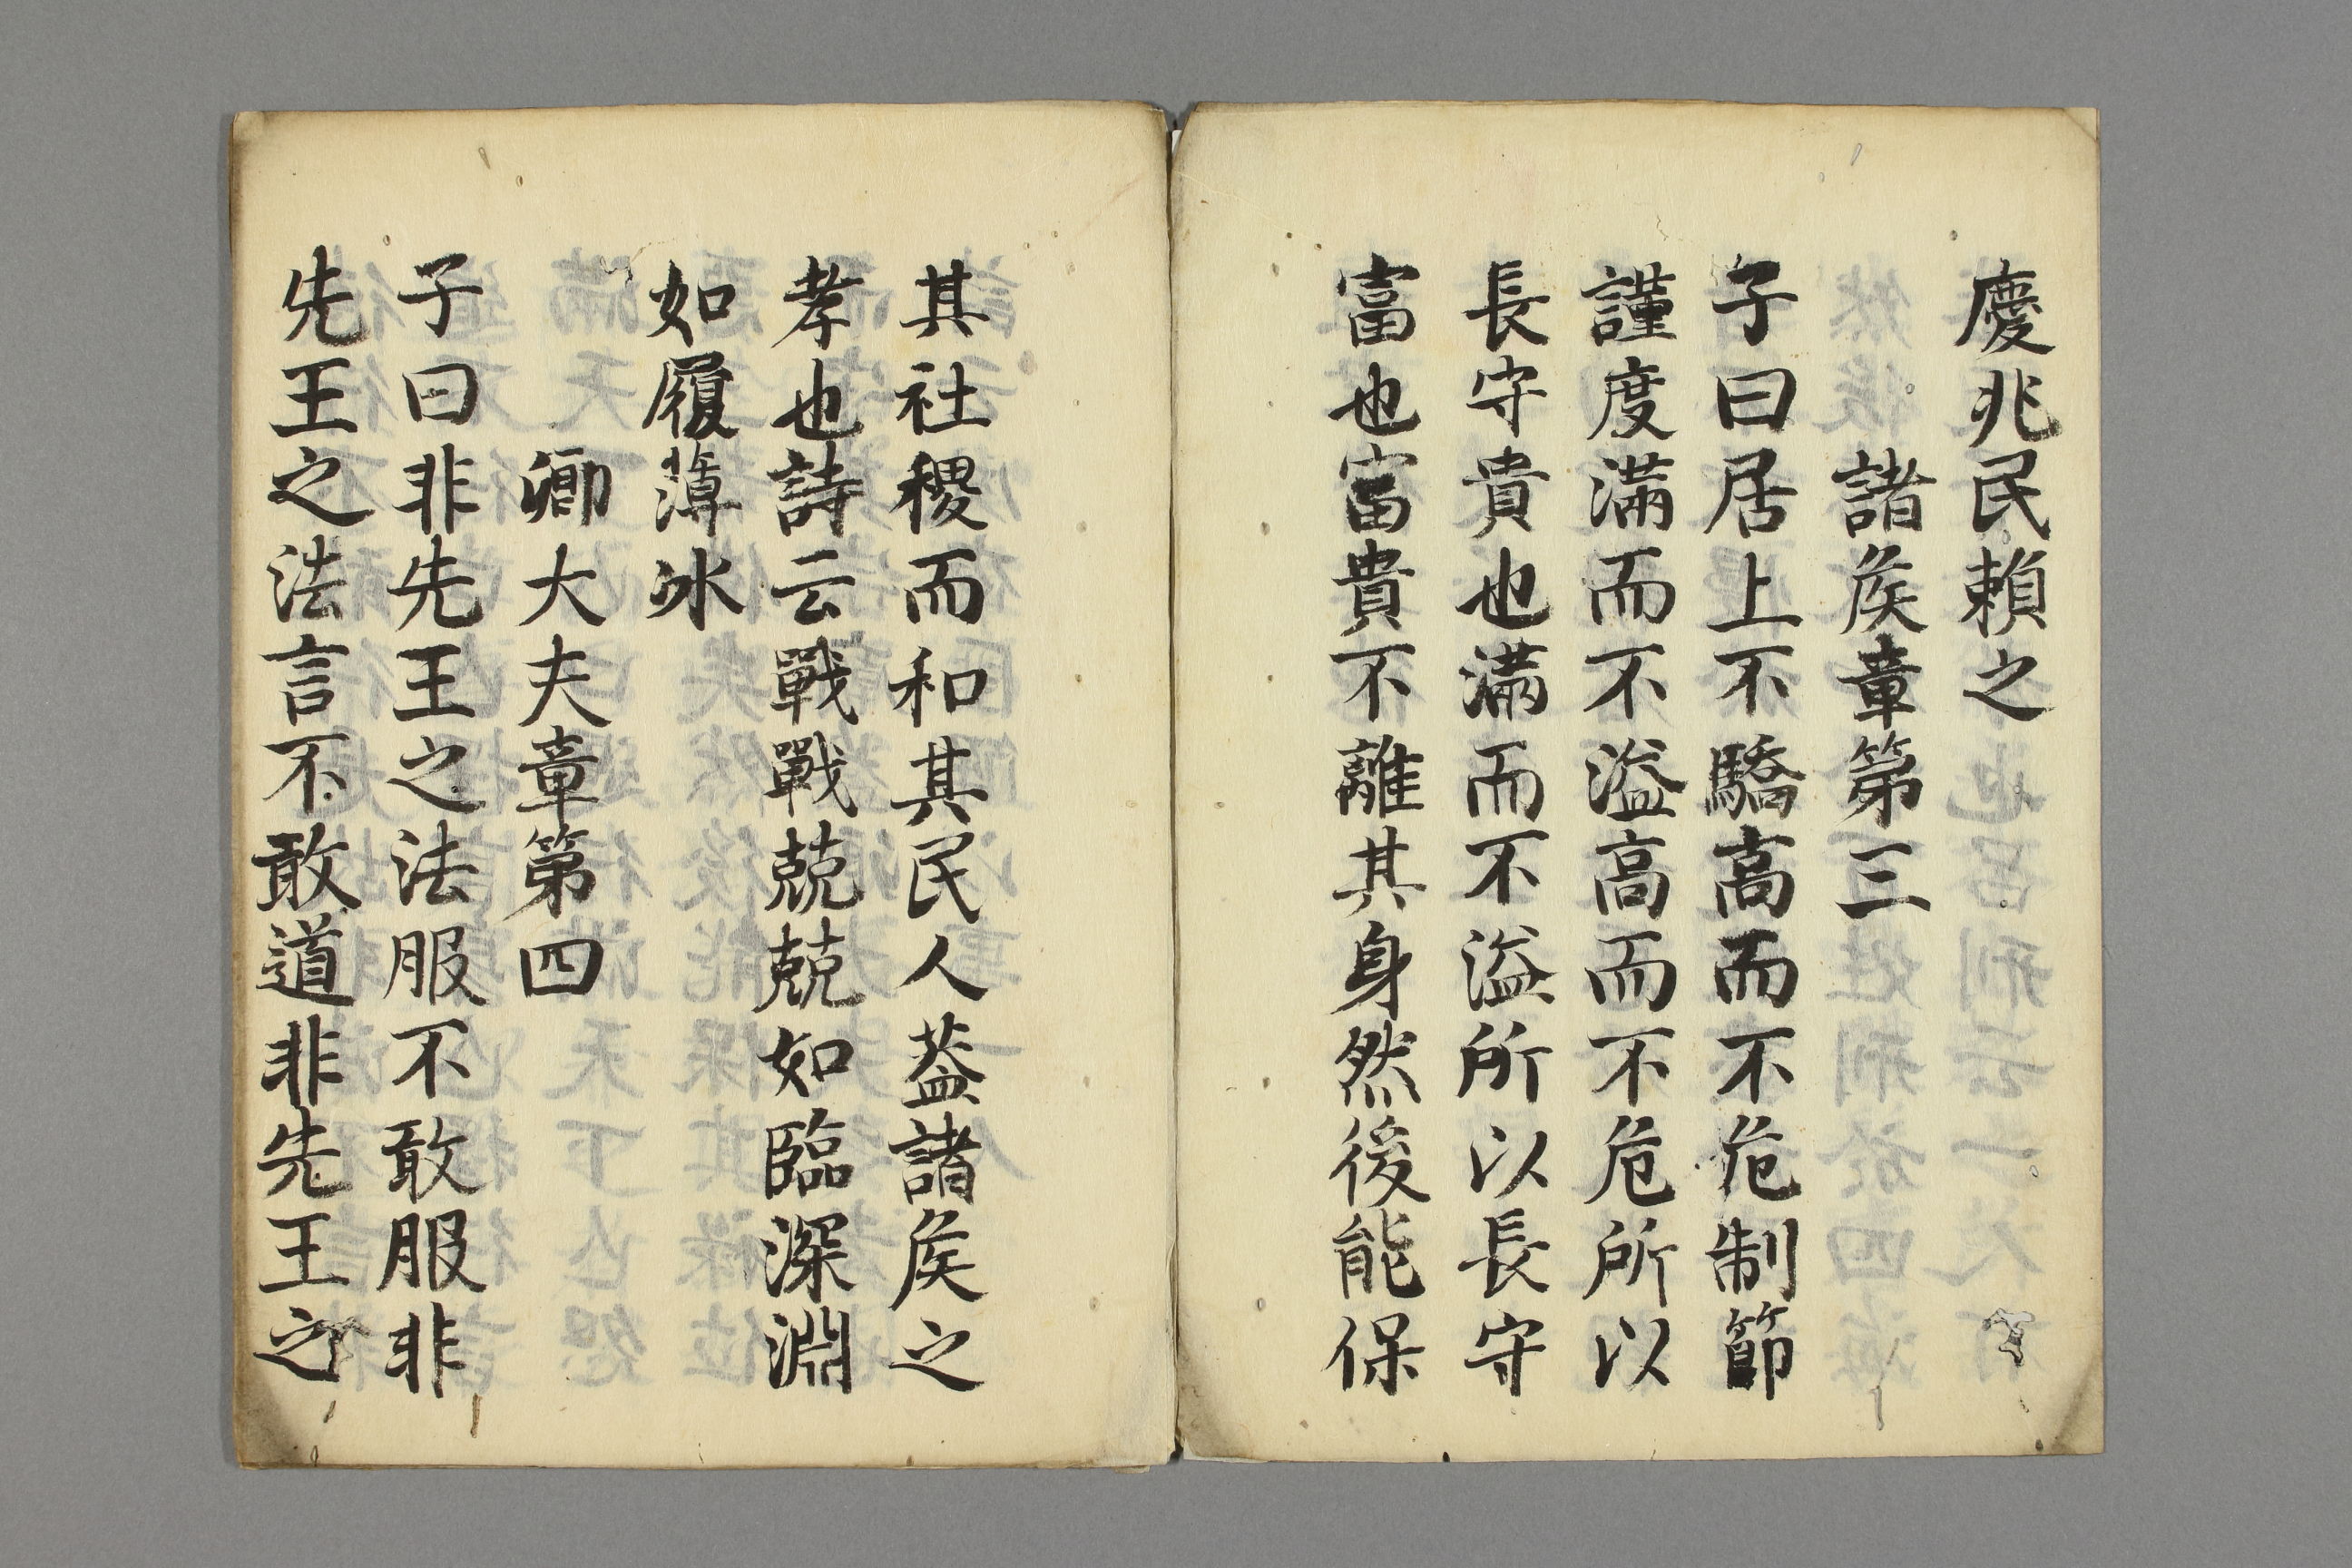 慶兆民賴之
諸矦章第三
子曰居上不驕高而不危制節
謹度滿而不溢高而不危所以
長守貴也滿而不溢所以長守
富也富貴不離其身然後能保
其社稷而和其民人葢諸矦之
孝也詩云戰戰兢兢如臨深淵
如履薄冰
卿大夫章第四
子曰非先王之法服不敢服非
先王之法言不敢道非先王之